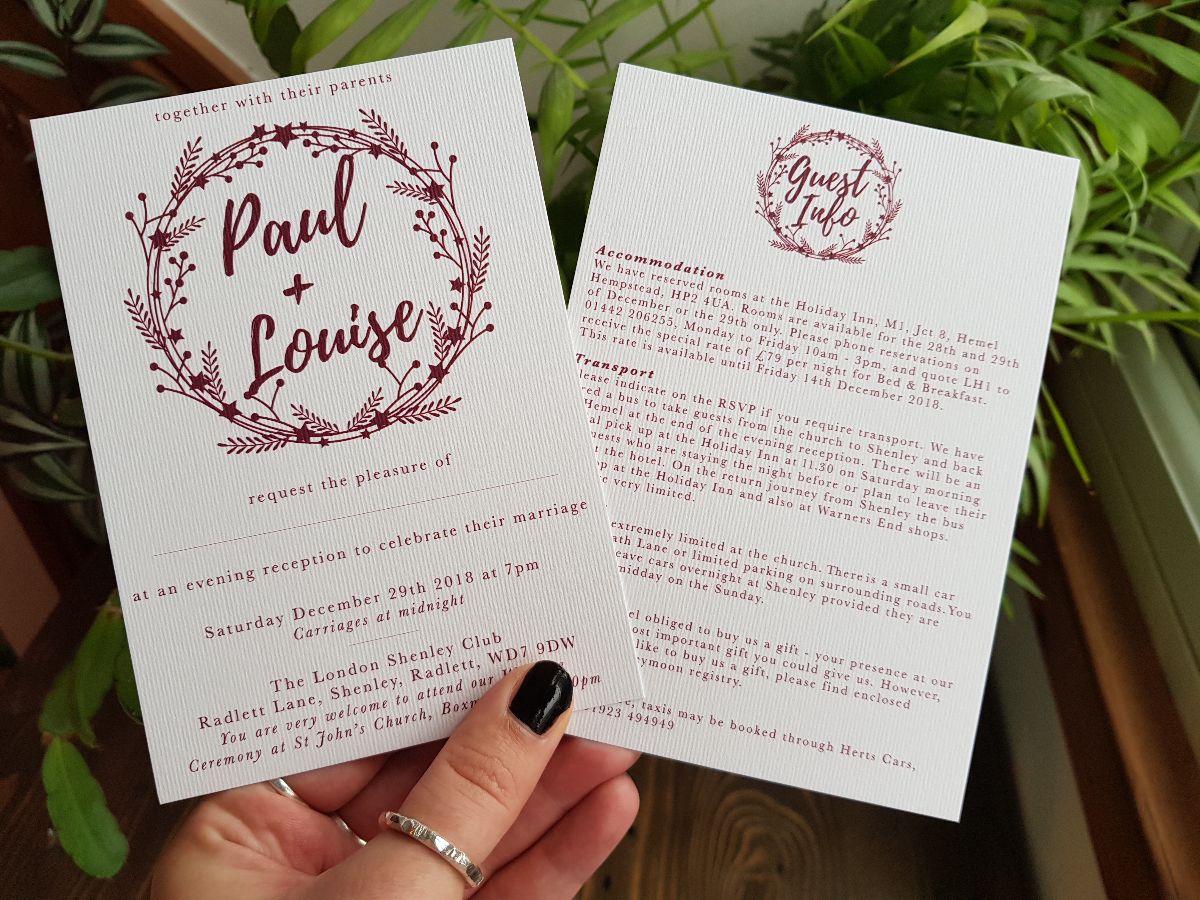 together with their parents
Paul
+
Louise
request the pleasure of
at an evening reception to celebrate their marriage
Saturday December 29th 2018 at 7pm
Carriages at midnight
The London Shenley Club
Radlett Lane, Shenley, Radlett, WD7 9DW
You are very welcome to attend our
Ceremony at St John's Church,
Guest
Info
Accommodation
We have reserved rooms at the Holiday Inn, M1, Jct 8, Hemel
Hempstead, HP2 4UA. Rooms are available for the 28th and 29th
of December or the 29th only. Please phone reservations on
01442 206255, Monday to Friday 10am - 3pm, and quote LH1 to
receive the special rate of £79 per night for Bed & Breakfast.
This rate is available until Friday 14th December 2018.
Transport
lease indicate on the RSVP if you require transport. We have
ed a bus to take guests from the church to Shenley and back
Hemel at the end of the evening reception. There will be an
al pick up at the Holiday Inn at 11.30 on Saturday morning
uests who are staying the night before or plan to leave their
the hotel. On the return journey from Shenley the bus
p at the Holiday Inn and also at Warners End shops.
very limited.
extremely limited at the church. There is a small car
ath Lane or limited parking on surrounding roads. You
eave cars overnight at Shenley provided they are
midday on the Sunday.
el obliged to buy us a gift - your presence at our
ost important gift you could give us. However,
like to buy us a gift, please find enclosed
ymoon registry.
taxis may be booked through Herts Cars,
1923 494949